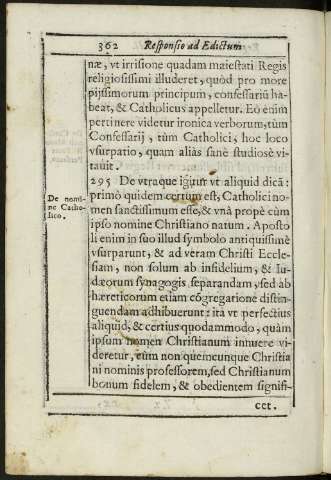 362 Responsio ad Edictum
næ, vt irrisione quadam maiestati Regis
religiosissimi illuderet, quòd pro more
pijssimorum principum, confessariũ ha-
beat, & Catholicus appelletur. Eò enim
pertinere videtur ironica verborum, tùm
Confessarij, tùm Catholici, hoc loco
vsurpatio, quam aliàs sanè studiosè vi-
tauit.
295 De vtraque igitur vt aliquid dicã:
primò quidem certum est, Catholici no-
men sanctissimum esse, & vnà propè cùm
ipso nomine Christiano natum. Aposto
li enim in suo illud symbolo antiquissimè
vsurparunt, & ad veram Christi Eccle-
siam, non solum ab infidelium, & Iu-
dæorum synagogis separandam, sed àb
hæreticorum etiam cõgregatione distin-
guendam adhibuerunt: ità vt perfectius
aliquid, & certius quodammodo, quàm
ipsum nomen Christianum innuere vi-
deretur, cùm non quemcunque Christia
ni nominis professorem, sed Christianum
bonum fidelem, & obedientem signifi-
cet.
De nomi-
ne Catho-
lico.